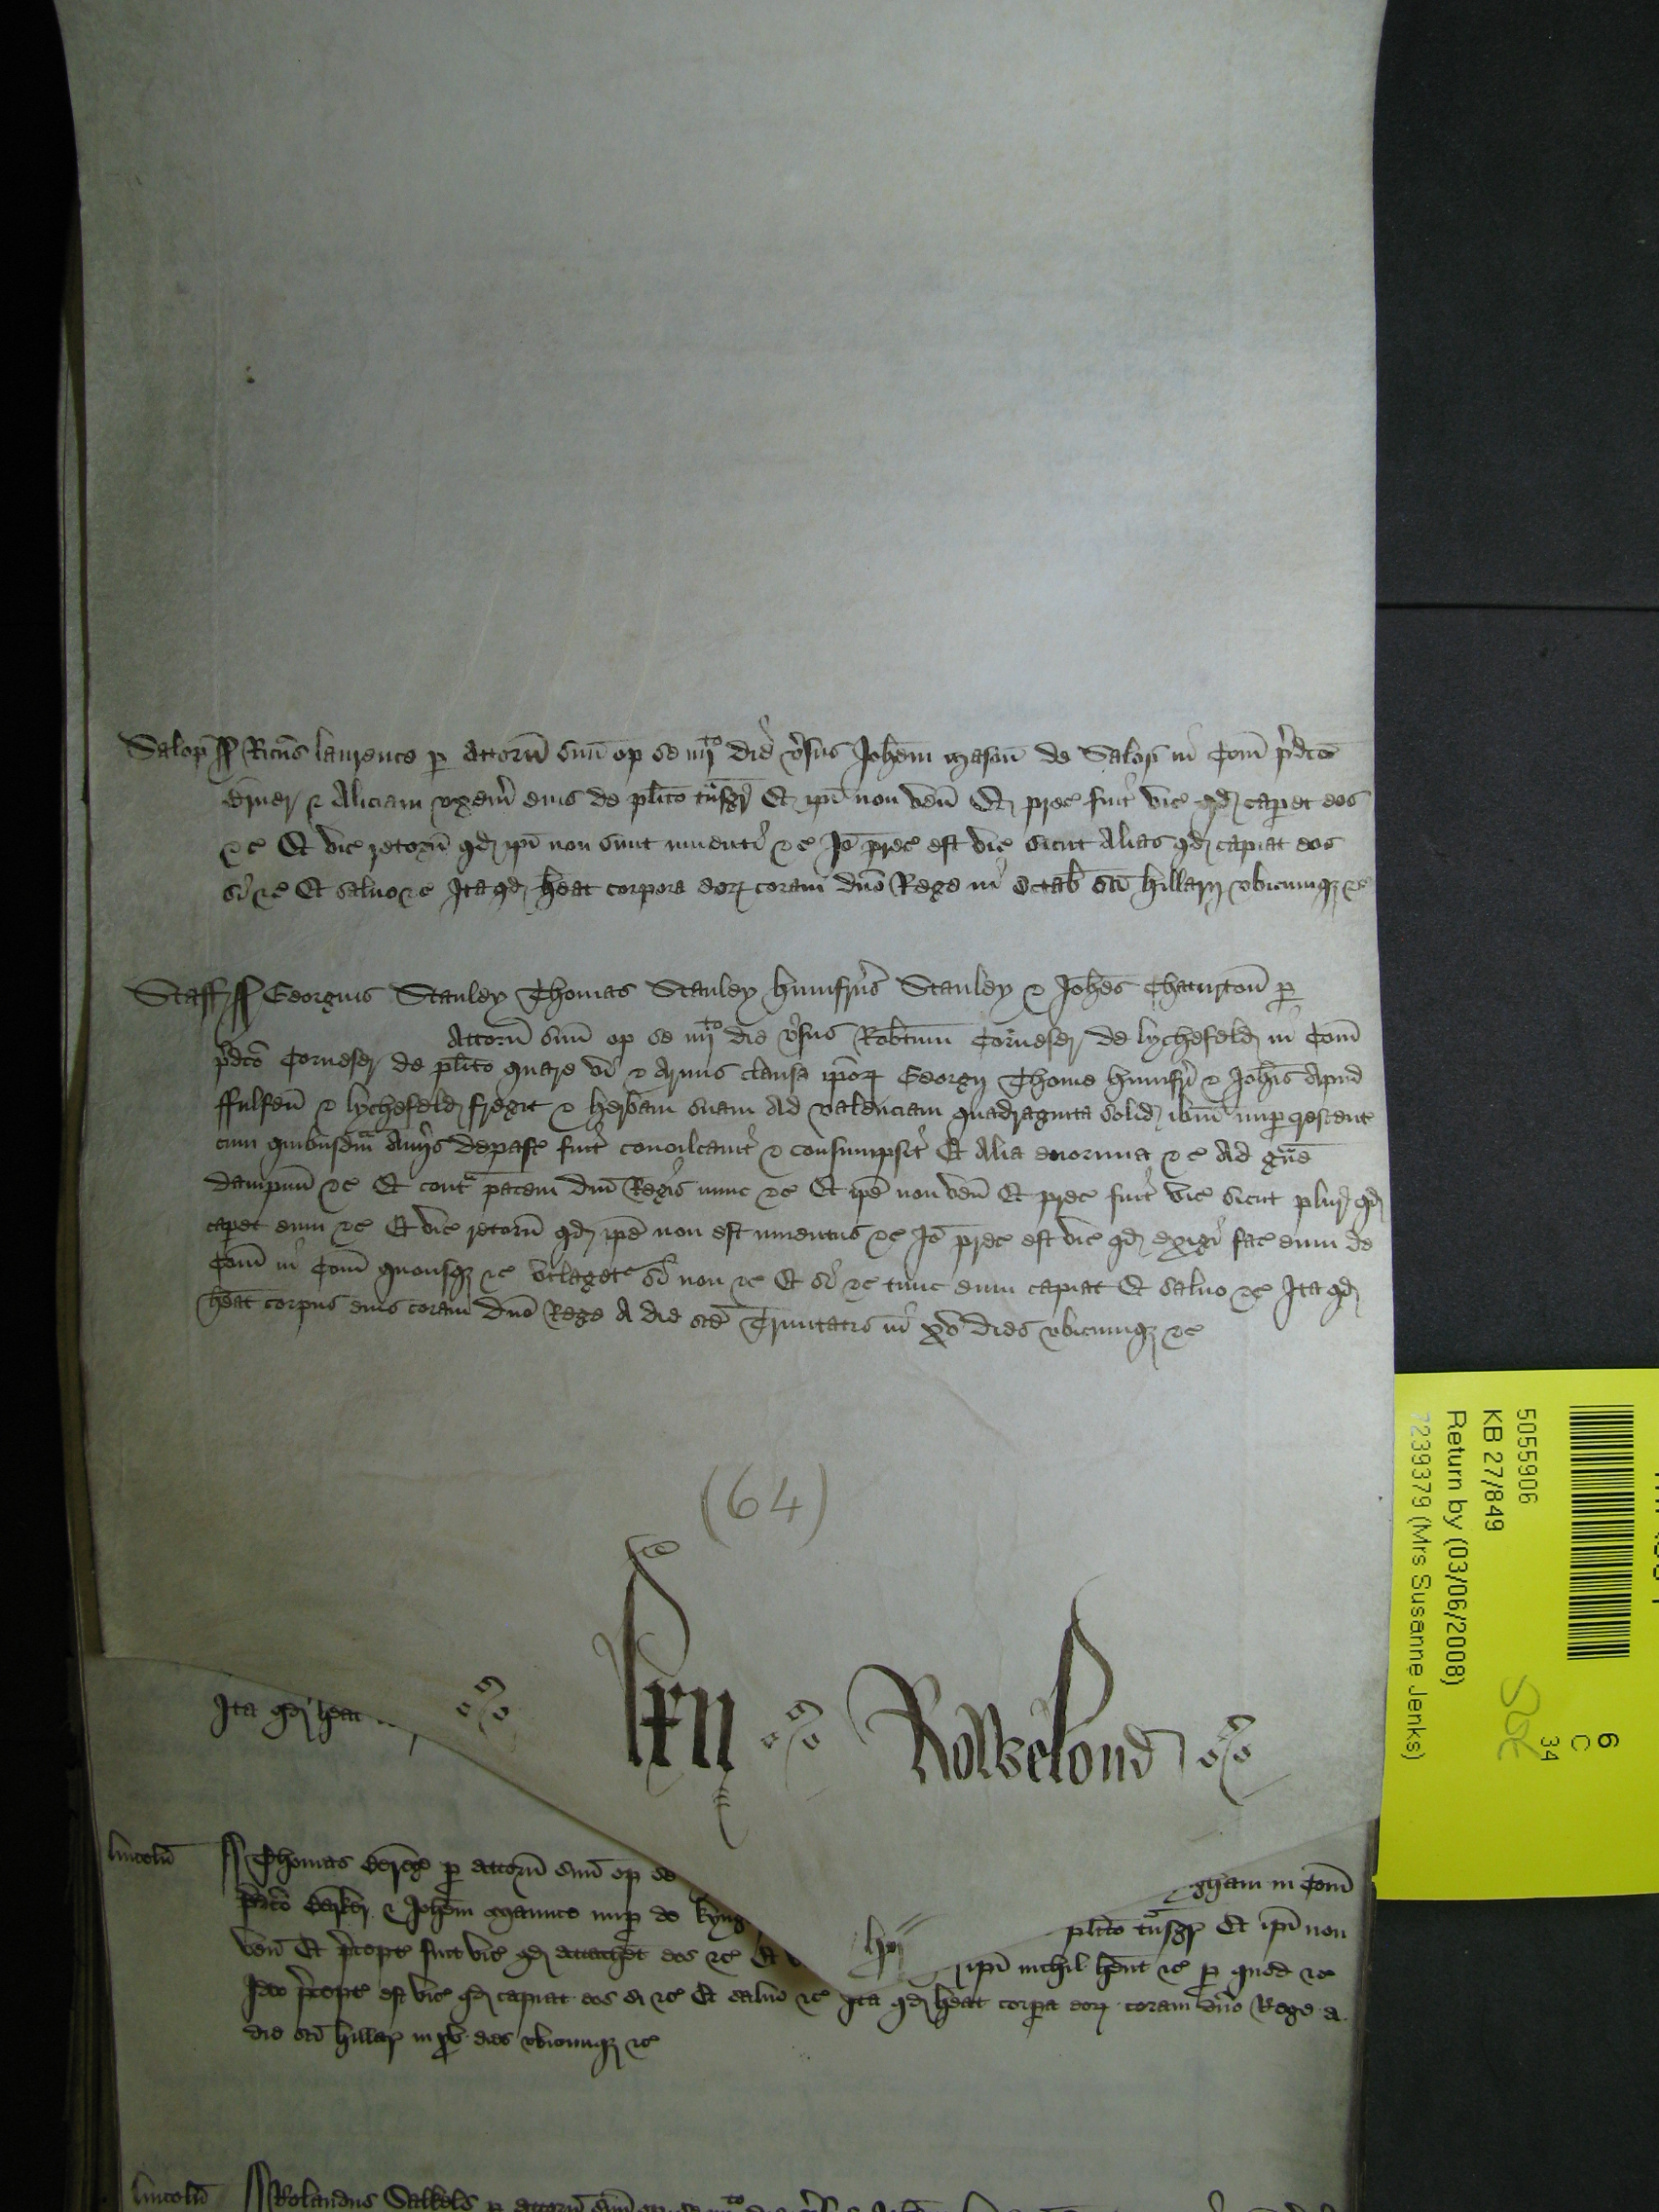 Salop̄ ss Ricūs laurence p̱ attorn̄ suū op se iiijto die v̓sus Joh̄em mason̄ de Salop̱ in Com̄ p̓dc̄o
& Aliciam vxem̓ eius de plīto tn̄sgr̓ Et ip̄i non ven̄ Et prec̱ fuit̓ vic̱ qḏ caperet eos
&c̱ Et vic̱ retorn̄ qḏ ip̄i non sunt inuenti̓ &c̱ Jō prec̱ est vic̱ sicut Alias qḏ capiat eos
si̓ &c̱ Et saluo &c̱ Ita qḏ h̄eat corpora eoꝝ coram dn̄o Rege in Octab̄ sc̄i hillarij vbicumqꝫ &c̱
Staff ss Georgius Stanley Thomas Stanley humfrus̓ Stanley & Joh̄es Chaturton̄ p̱
Attorn̄ suū op se iiijto die v̓sus Rob̄tum Corueser de lychefelḏ in Com̄
p̓dc̄o Corueser de plīto quare vi̓ & armis clausa ip̄oꝝ Georgij Thome humfri̓ & Joh̄is apud
ffulfen̄ & lychefelḏ fregit & herbam suam ad valenciam quadraginta soliḏ ib̄m nup̱ crescenṯ
cum quibusdm̄ aūijs depasṯ fuit̓ conculcauit̓ & consumpsit̓ Et Alia enormia &c̱ Ad gūe
dampnū &c̱ Et cont̄ pacem dn̄i Regis nunc &c̱ Et ip̄e non ven̄ Et prec̱ fuit̓ vic̱ sicut plur̓ qḏ
caperet eum &c̱ Et vic̱ retorn̄ qḏ ip̄e non est inuentus &c̱ Jō prec̱ est vic̱ qḏ exigi̓ fac̱ eum de
Com̄ in Com̄ quousqꝫ &c̱ vtlageṯ si̓ non &c̱ Et si̓ &c̱ tunc eum capiat Et saluo &c̱ Ita qḏ
h̄eat corpus eius coram dn̄o Rege A die sc̄e Trinitatis in xv dies vbicumqꝫ &c̱
(64)
Ita qḏ h̄eat
lxij Rolbelond
lincoln̄ ss Thomas p̱ attorn̄ suū op se
gham in Com̄
p̓dc̄o & Joh̄em nup̱ de kyng
plīto tn̄sgṟ Et ip̄i non
ven̄ Et p̓cepṯ fuit vic̱ qḏ attachet eos &c̱ Et
ip̄i nichil h̄ent &c̱ p̱ quod &c̱
Ideo p̓cepṯ est vic̱ qḏ capiat eos si &c̱ Et saluo &c̱ Ita qḏ h̄eat corpora eoꝝ coram dn̄o Rege a
die sc̄i hillaṟ in xv dies vbicumqꝫ &c̱
lincoln̄ Rolandus Salkeld p̱ attorn̄ suū
5055906
KB 27/849
Return by (03/06/2008)
7239379 (Mrs Susanne Jenks)
6
C
34